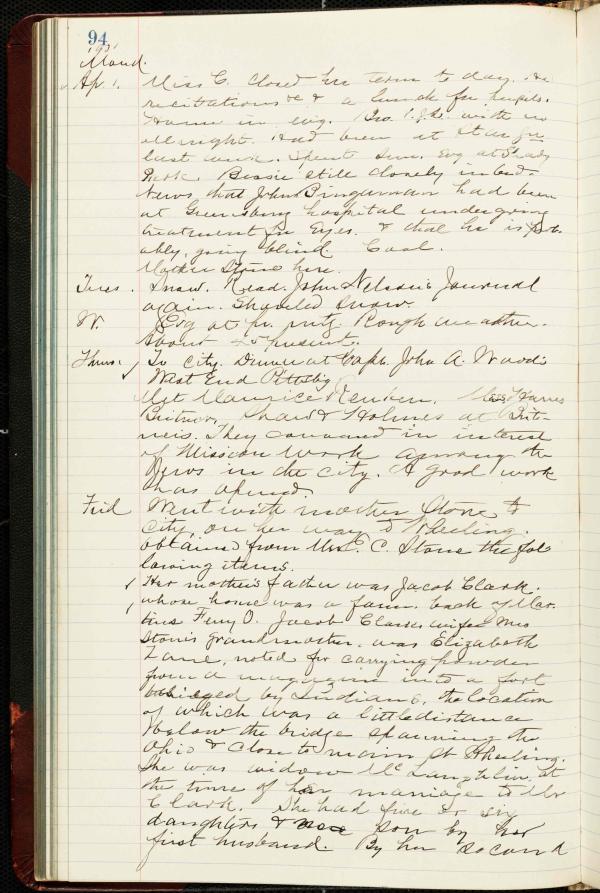 94
1901
Mond.
Ap. 1. Miss C. closed her term to day. He
recitations &c & a lunch for pupils.
Home in evg. Bro. with us
all night. Had been at
last week. Spent Sun. Evg at Shady
Park. Bessie still closely in bed.
News that John Bingaman had been
at Greensburg hospital undergoing
treatment for Eyes. & that he is prob-
ably, going blind Coal.
Mother Stone here.
Tues. Snow. Read John Nelson's Journal
again. Shoveled snow.
W. Evg at pr. mtg. Rough weather.
About present.
Thurs. To city. Dinner at Capt. John A. Wood's
West End Pittsbg
Met Maurice Reuben. Harris
Shaw & Holmes at Brit-
neis. They convened in interest
of Mission work among the
Jews in the city. A good work
has opened.
Frid Went with mother Stone to
city, on her way to Wheeling.
Obtained from Mrs. E. C. Stone the fol
lowing items.
Her mother's father was Jacob Clark.
whose home was a farm. back of Mar-
tins Ferry O. Jacob Clarks wife Mrs
Stone's grandmother, was Elizabeth
Zane, noted for carrying powder
from a magazine into a fort
besieged by Indians, the location
of which was a little distance
below the bridge spanning the
Ohio & close to main St Wheeling.
She was widow McLaughlin, at
the time of her marriage to Mr
Clark. She had five or six
daughters & son by her
first husband. By her second